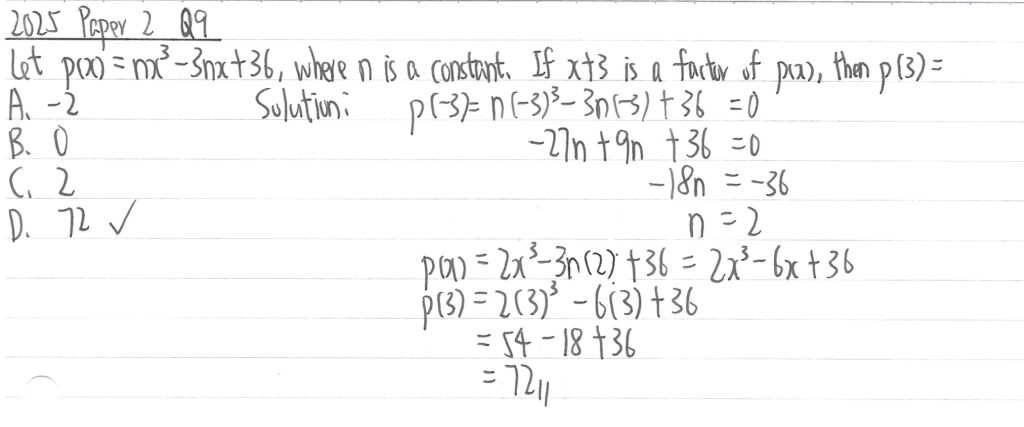 2025 Paper 2 Q9
Let p(x) = nx³-3nx+36, where n is a constant. If x+3 is a factor of p(x), then p(3) =
A. -2 Solution: p(-3)= n(-3)³-3n(-3)+36 =0
B. 0 -27n+9n +36 =0
C. 2 -18n = -36
D. 72 ✓ n = 2
p(x) = 2x³-3n(2)+36 = 2x³-6x+36
p(3) = 2(3)³ -6(3)+36
= 54 -18+36
= 72//